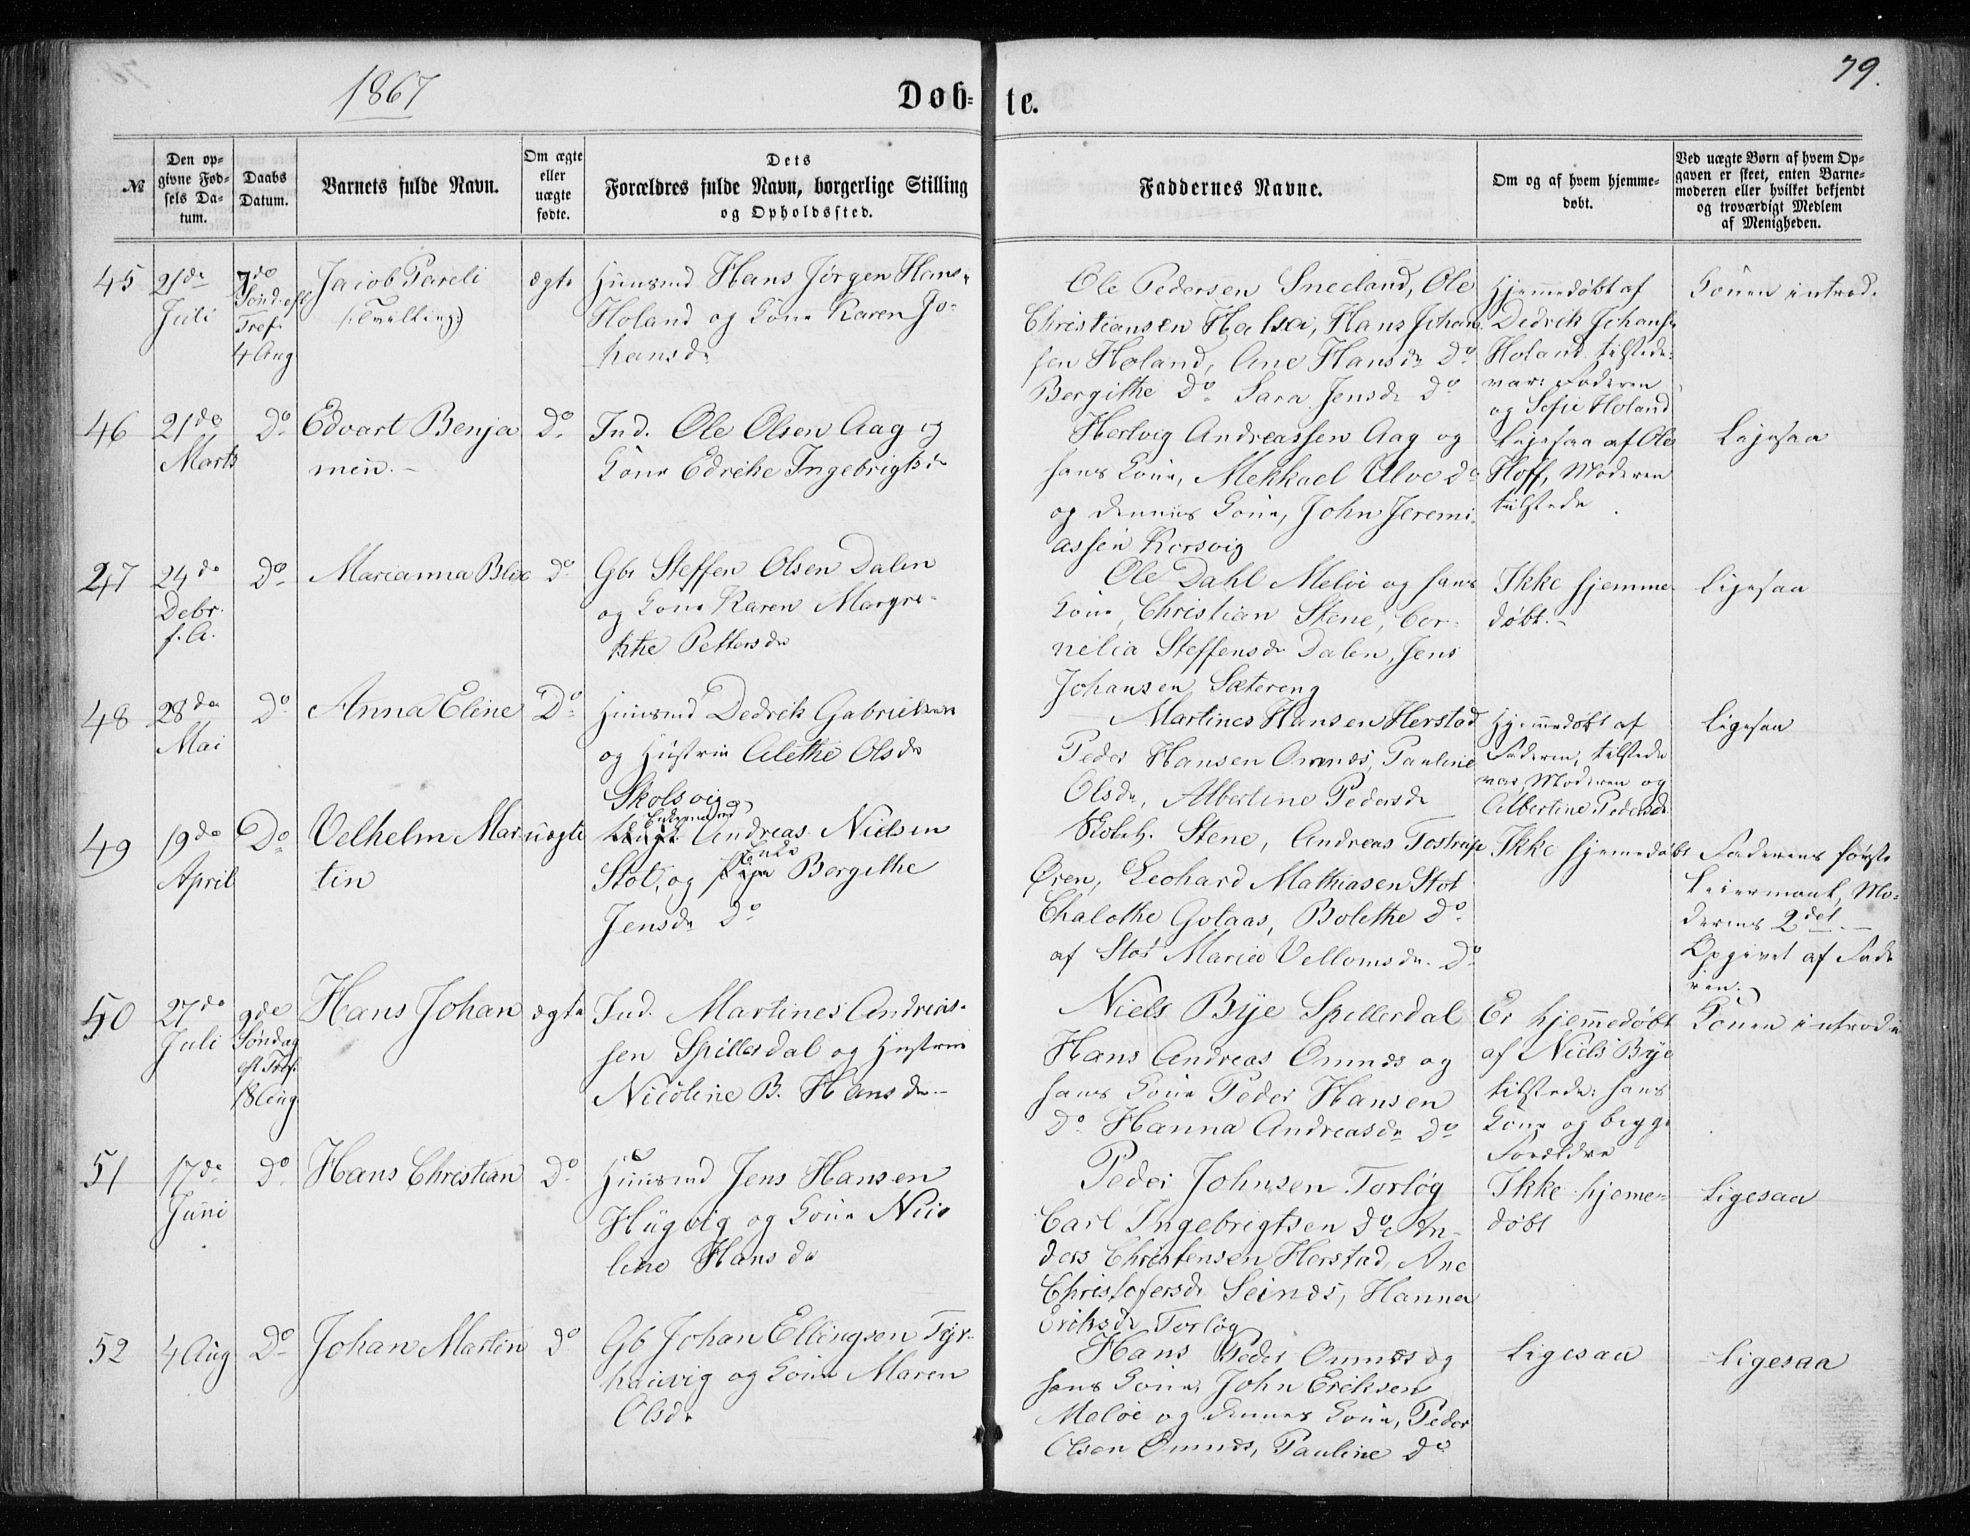 1867
79.
Døb-te.
№
Den op-
givne Fød-
sels Da-
tum.
Daabs
Datum.
Barnets fulde Navn.
Om ægte
eller
uægte
fødte.
Dets
Forældres fulde Navn, borgerlige Stilling
og Opholdssted.
Faddernes Navne.
Om og af hvem hjemme-
døbt.
Ved uægte Børn af hvem Op-
gaven er skeet, enten Barne-
moderen eller hvilket bekjendt
og troværdigt Medlem
af Menigheden.
45
21de
Juli
7do
Sønd. eft
Tref.
4 Aug
Jacob Pareli
(: Tvilling :)
ægte
Huusmd Hans Jørgen Hans.
Holand og Kone Karen Jo-
hansdr
Ole Pedersen Sneeland, Ole
Christiansen Halsa, Hans Johan-
sen Holand, Ane Hansdr Do
Bergithe Do Sara Jensdr Do
Hjemmedøbt af
Dedrik Johans.
Holand tilstede:
var: Faderen
og Sofie Holand
Konen introd.
46
21de
Marts
Do
Edvart Benja
min.-
Do
Ind. Ole Olsen Aag og
Kone Edrike Ingebrigtsdr
Hertvig Andreassen Aag og
hans Kone, Mekkael Ulve do
og dennes Kone, John Jeremi-
assen Korsvig
Ligesaa af Ole
Hoff, Moderen
tilstede
Ligesaa
47
24de
Debr.
f. A.
Do
Marianna
Do
Gbr Steffen Olsen Dalen
og Kone Karen Margre-
thte Pettersdr
Ole Dahl Meløe og hans
Kone, Christian Stene, Cor-
nelia Steffensdr Dalen, Jens
Johansen Sætereng
Ikke hjemme
døbt.-
Ligesaa
48
28de
Mai
Do
Anna Eline
Do
Huusmd Dedrik Gabrielsen
og Hustrue Alethe Olsdr
Skolsvig
Martines Hansen Herstad
Peder Hansen Ornnes, Pauline
Olsdr, Albertine Pedersdr
Hjemmedøbt af
Faderen, tilstede
var Moderen og
Albertine Pedersdr
Ligesaa
49
19de
April
Do
Velhelm Mar-
tin
uægte
Enkemand
Andreas Nielsen
Stot, og Enke Bergithe
Jensdr Do
Stene, Andreas Tostrup
Øren, Leohard Mathiasen Stot
Chalothe Golaas, Bolethe Do
af Stot Marie Vellomsdr. Do
Ikke hjemedøbt
Faderens første
Leiermaal, Mo-
derens 2det.-
Opgivet af Fade
ren.
50
27de
Juli
9de
Søndag
eft Tref.
18 Aug
Hans Johan
ægte
Ind. Martines Andreas-
sen Spillerdal og Hustrue
Nicoline B. Hansdr.-
Niels Bye Spillerdal
Hans Andreas Ornnes og
hans Kone Peder Hansen
Do Hanna Andreasdr Do
Er hjemmedøbt
af Niels Bye
tilstede: hans
Kone og begge
Forældre
Konen introd:
51
17de
Juni
Do
Hans Christian
Do
Huusmd Jens Hansen
Hügvig og Kone Nico
line Hansdr
Peder Johnsen Torløg
Carl Ingebrigtsen Do An-
ders Christensen Herstad, Ane
Christofersdr Seines, Hanna
Eriksdr Torløg
Ikke hjeme-
døbt
Ligesaa
52
4 Aug
Do
Johan Martin
do
Gb Johan Ellingsen Tyv-
haugvig og Kone Maren
Olsdr
Hans Peder Ornnes og
hans Kone, John Eriksen
Meløe og dennes Kone, Peder
Olsen Ornnes, Pauline Do
Ligesaa
Ligesaa